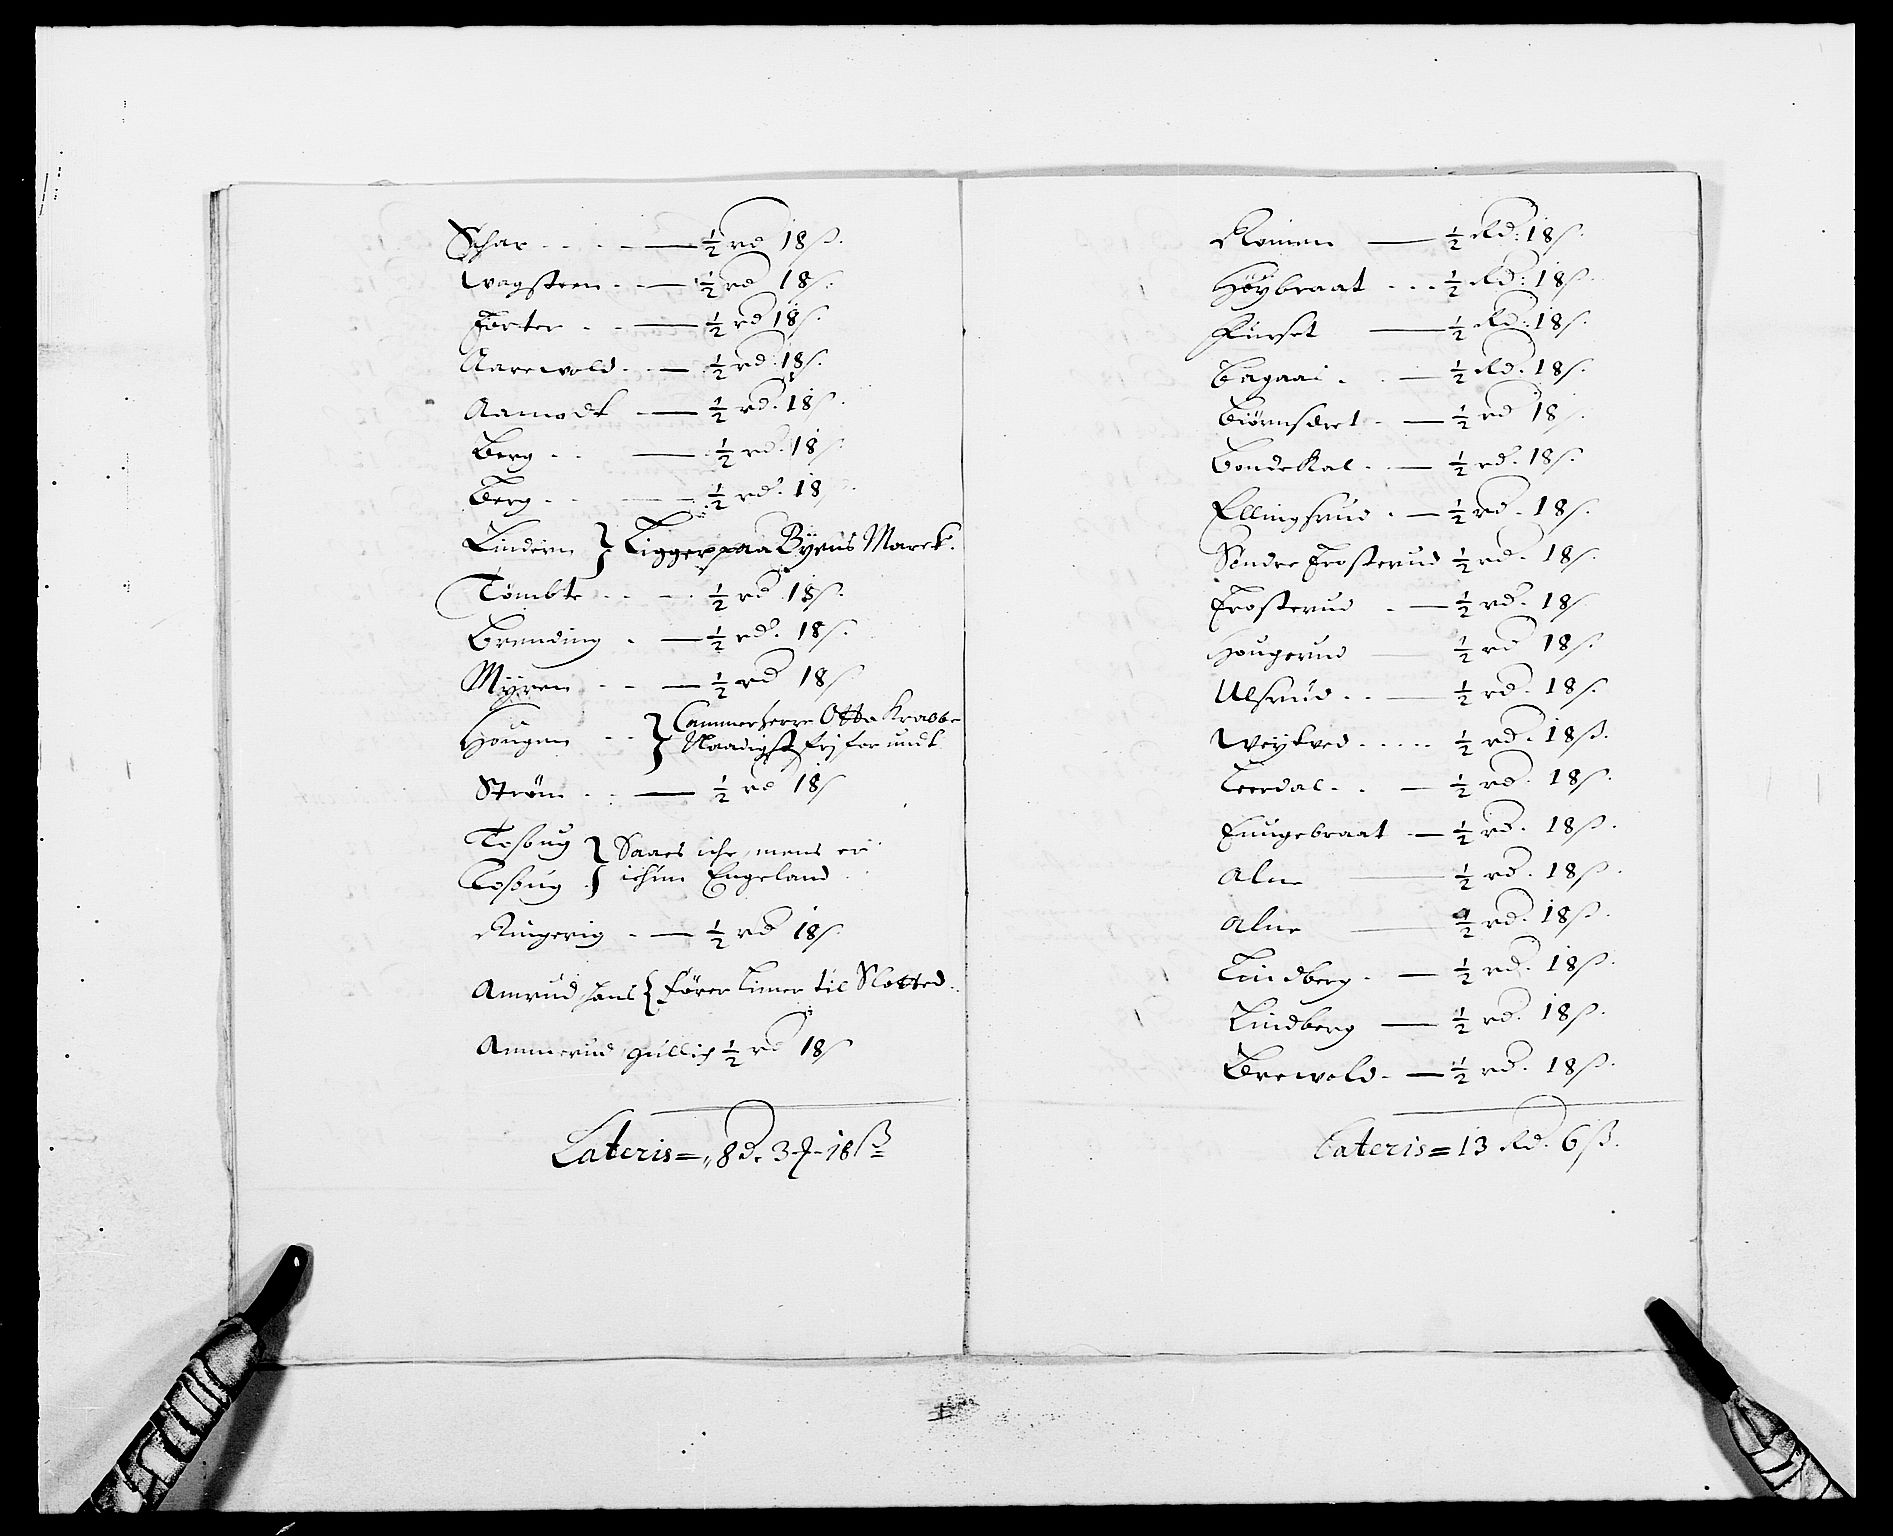 Schar - - - - — ½ rd 18 ß.
Wagsteen - - — ½ rd 18 ß.
Forter - - — ½ rd 18 ß.
Aarewold - - — ½ rd. 18 ß.
Aamodt — ½ rd. 18 ß.
Berg - - — ½ rd. 18 ß
Berg - - — ½ rd. 18
Lindern } Ligger paa Byens Marck.
Tømbte - - - - ½ rd 18 ß.
Brending - — ½ rd. 18 ß.
Myren - - — ½ rd 18 ß
Hougen - - } Cammerherre Otto Krabbe
Naadigst frj forundt
Strøm - - — ½ rd 18 ß
Tesoug } Saaes iche, mens er
Tesoug } ichun Engeland
Ringerig - — ½ rd 18 ß.
Amrud Hans { Fører Timer til Slotted.
Ammerud Gullich ½ rd 18 ß
Lateris = 8 d. 3 - 18 ß
Romen — ½ Rd: 18 ß.
Høybraat - - - ½ Rd: 18 ß.
Furset — ½ Rd: 18 ß.
Bagaas - - — ½ Rd. 18 ß.
Biørnsaret - — ½ rd 18 ß.
Bondekal - - — ½ rd. 18 ß.
Ellingsrud - — ½ rd. 18 ß.
Søndre Frosterud ½ rd. 18 ß.
Frosterud - — ½ rd. 18 ß
Hougerud — ½ rd 18 ß.
Ulsrud - - — ½ rd. 18 ß.
Weytved - - - - - ½ rd. 18 ß.
Teerdal - - — ½ rd. 18 ß.
Fuugebraat — ½ rd. 18 ß.
Alne — ½ rd. 18 ß.
Alne — ½ rd. 18 ß.
Lindberg - — ½ rd. 18 ß.
Lindberg — ½ rd. 18 ß.
Brewold - — ½ rd. 18 ß.
Lateris = 13 Rd. 6 ß.